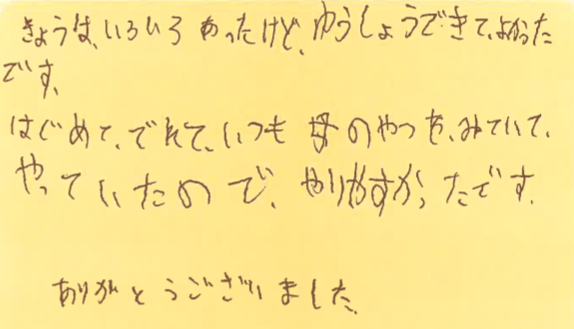 きょうは、いろいろあったけど、ゆうしょうできて、よかった
です。
はじめて、でれて、いつも母のやつを、みていて、
やっていたので、やりやすかったです。
ありがとうございました。